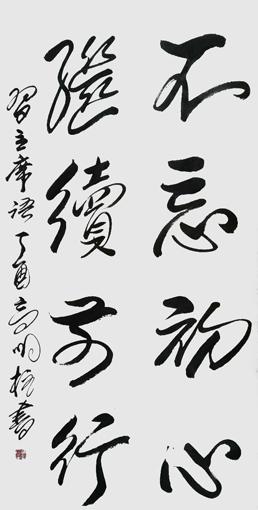 不忘初心
繼續前行
習主席語丁酉高明柱書